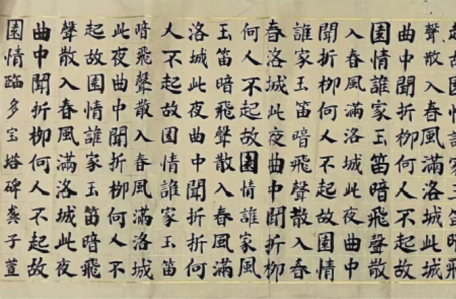 起故園情誰家玉笛暗飛
聲散入春風滿洛城此夜
曲中聞折柳何人不起故
園情誰家玉笛暗飛聲散
入春風滿洛城此夜曲中
聞折柳何人不起故園情
誰家玉笛暗飛聲散入春
春洛城此夜曲中聞折柳
何人不起故園情誰家風
玉笛暗飛聲散入春風滿
洛城此夜曲中聞折折何
人不起故園情誰家玉笛
暗飛聲散入春風滿洛城
此夜曲中聞折柳何人不
起故園情誰家玉笛暗飛
聲散入春風滿洛城此夜
曲中聞折柳何人不起故
園情臨多宝塔碑龚子萱